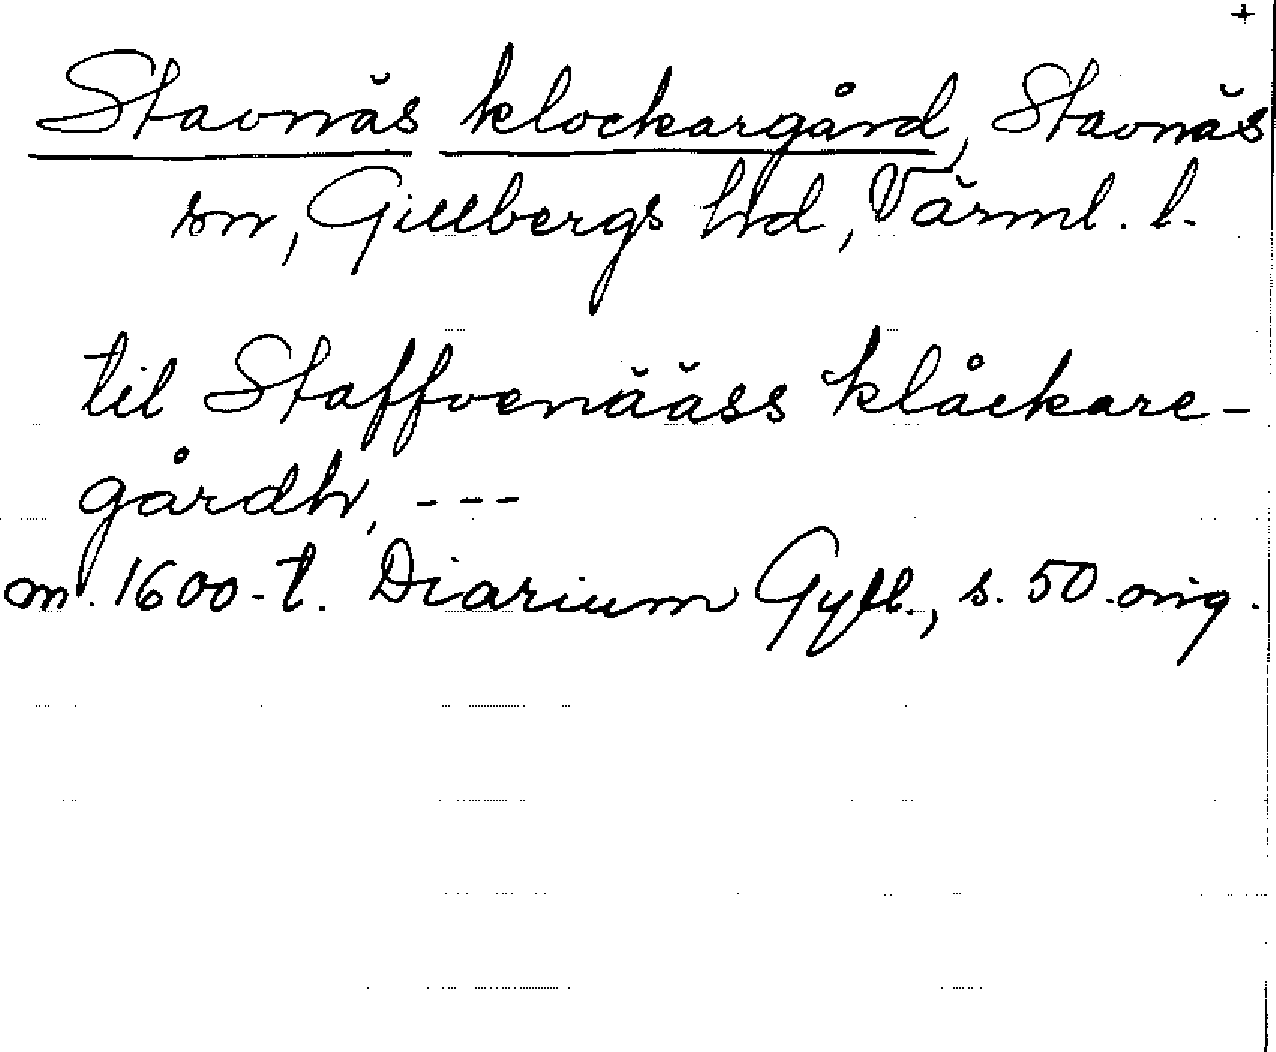 +
Stavnäs klockargård, Stavnäs
sn, Gillbergs hd, Värml. l.
til Staffvenääss klåckare-
gårdh, ---
m. 1600-t. Diarium Gyll., s. 50 orig.